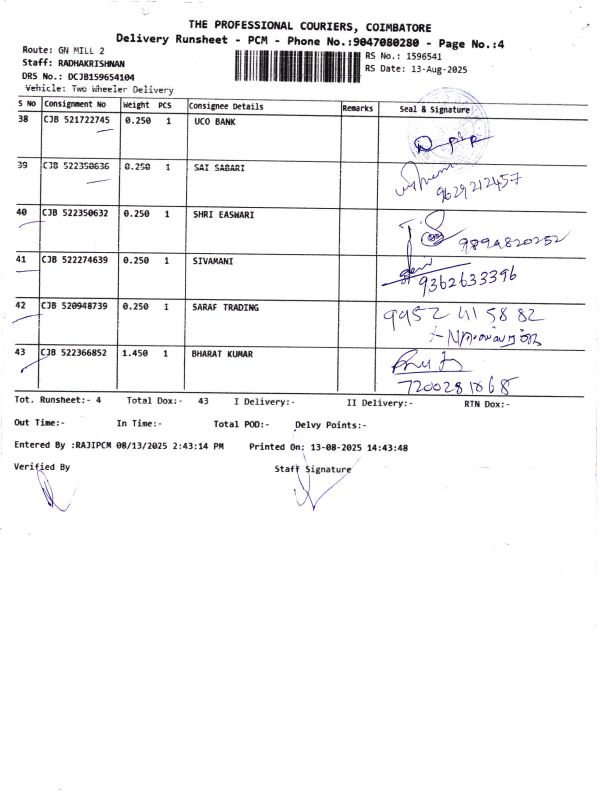 THE PROFESSIONAL COURIERS, COIMBATORE
Delivery Runsheet - PCM - Phone No.:9047080280 - Page No.:4
Route: GN MILL 2
RS No.: 1596541
Staff: RADHAKRISHNAN
RS Date: 13-Aug-2025
DRS No.: DCJB159654104
Vehicle: Two Wheeler Delivery
S No Consignment No Weight PCS Consignee Details Remarks Seal & Signature
38 CJB 521722745 0.250 1 UCO BANK
39 CJB 522350636 0.250 1 SAI SABARI
9629212457
40 CJB 522350632 0.250 1 SHRI EASWARI
9894820252
41 CJB 522274639 0.250 1 SIVAMANI
9362633396
42 CJB 520948739 0.250 1 SARAF TRADING
9952 41 58 82
43 CJB 522366852 1.450 1 BHARAT KUMAR
7200281868
Tot. Runsheet:- 4 Total Dox:- 43 I Delivery:- II Delivery:- RTN Dox:-
Out Time:- In Time:- Total POD:- Delvy Points:-
Entered By :RAJIPCM 08/13/2025 2:43:14 PM Printed On: 13-08-2025 14:43:48
Verified By Staff Signature